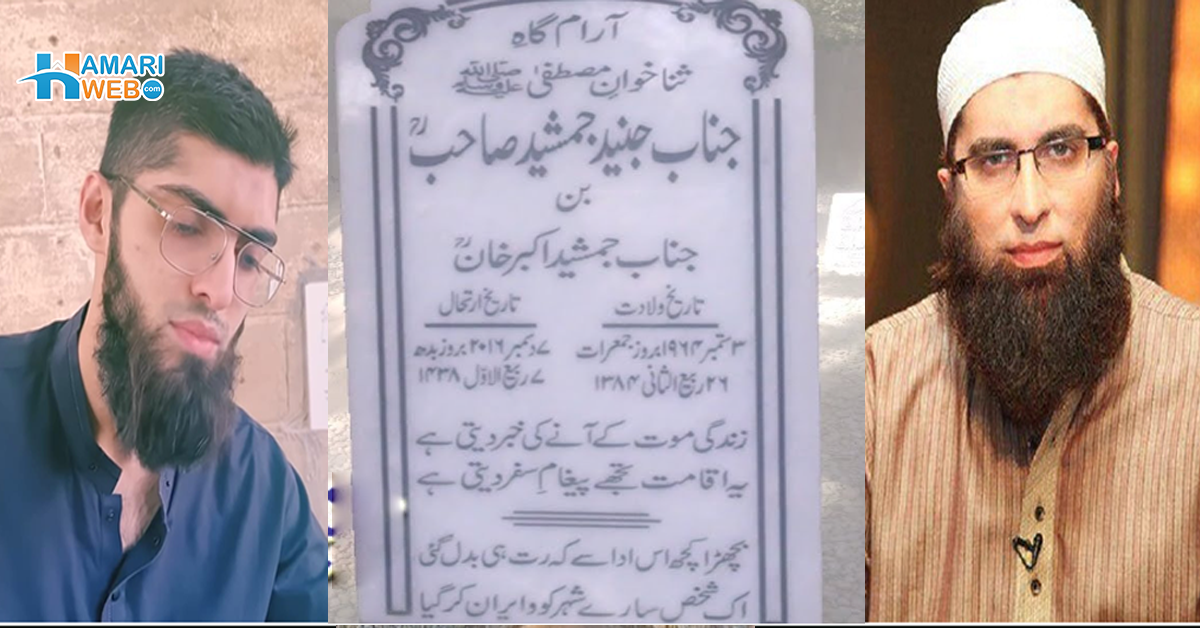 HAMARI
WEB.com
آرام گاہ
ثنا خوانِ مصطفیٰ ﷺ
جناب جنید جمشید صاحبؒ
بن
جناب جمشید اکبر خانؒ
تاریخ ولادت
تاریخ ارتحال
۳ ستمبر ۱۹۶۴ بروز جمعرات
۷ دسمبر ۲۰۱۶ بروز بدھ
۲۶ ربیع الثانی ۱۳۸۴
۷ ربیع الاوّل ۱۴۳۸
زندگی موت کے آنے کی خبر دیتی ہے
یہ اقامت تجھے پیغامِ سفر دیتی ہے
بچھڑا کچھ اس ادا سے کہ رت ہی بدل گئی
اک شخص سارے شہر کو ویران کر گیا